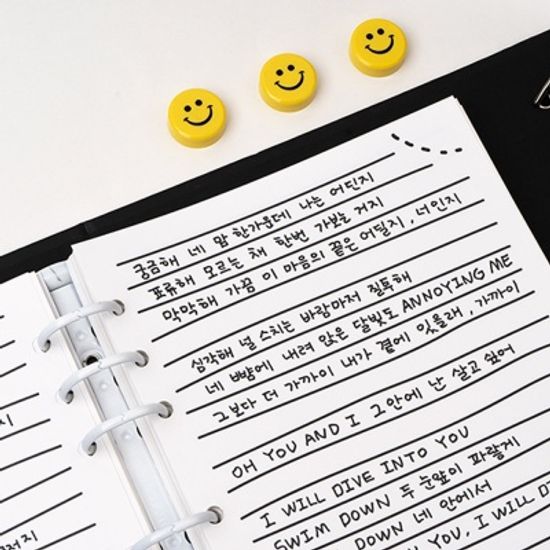 궁금해 네 맘 한가운데 나는 어딘지
표류해 모르는 채 한번 가보는 거지
막막해 가끔 이 마음의 끝은 어딜지, 너인지
심각해 널 스치는 바람마저 질투해
네 뺨에 내려 앉은 달빛도 ANNOYING ME
그보다 더 가까이 내가 곁에 있을래, 가까이
OH YOU AND I 그안에 난 살고 싶어
I WILL DIVE INTO YOU
SWIM DOWN 두 눈앞이 파랗게
DOWN 네 안에서
YOU, I WILL DI